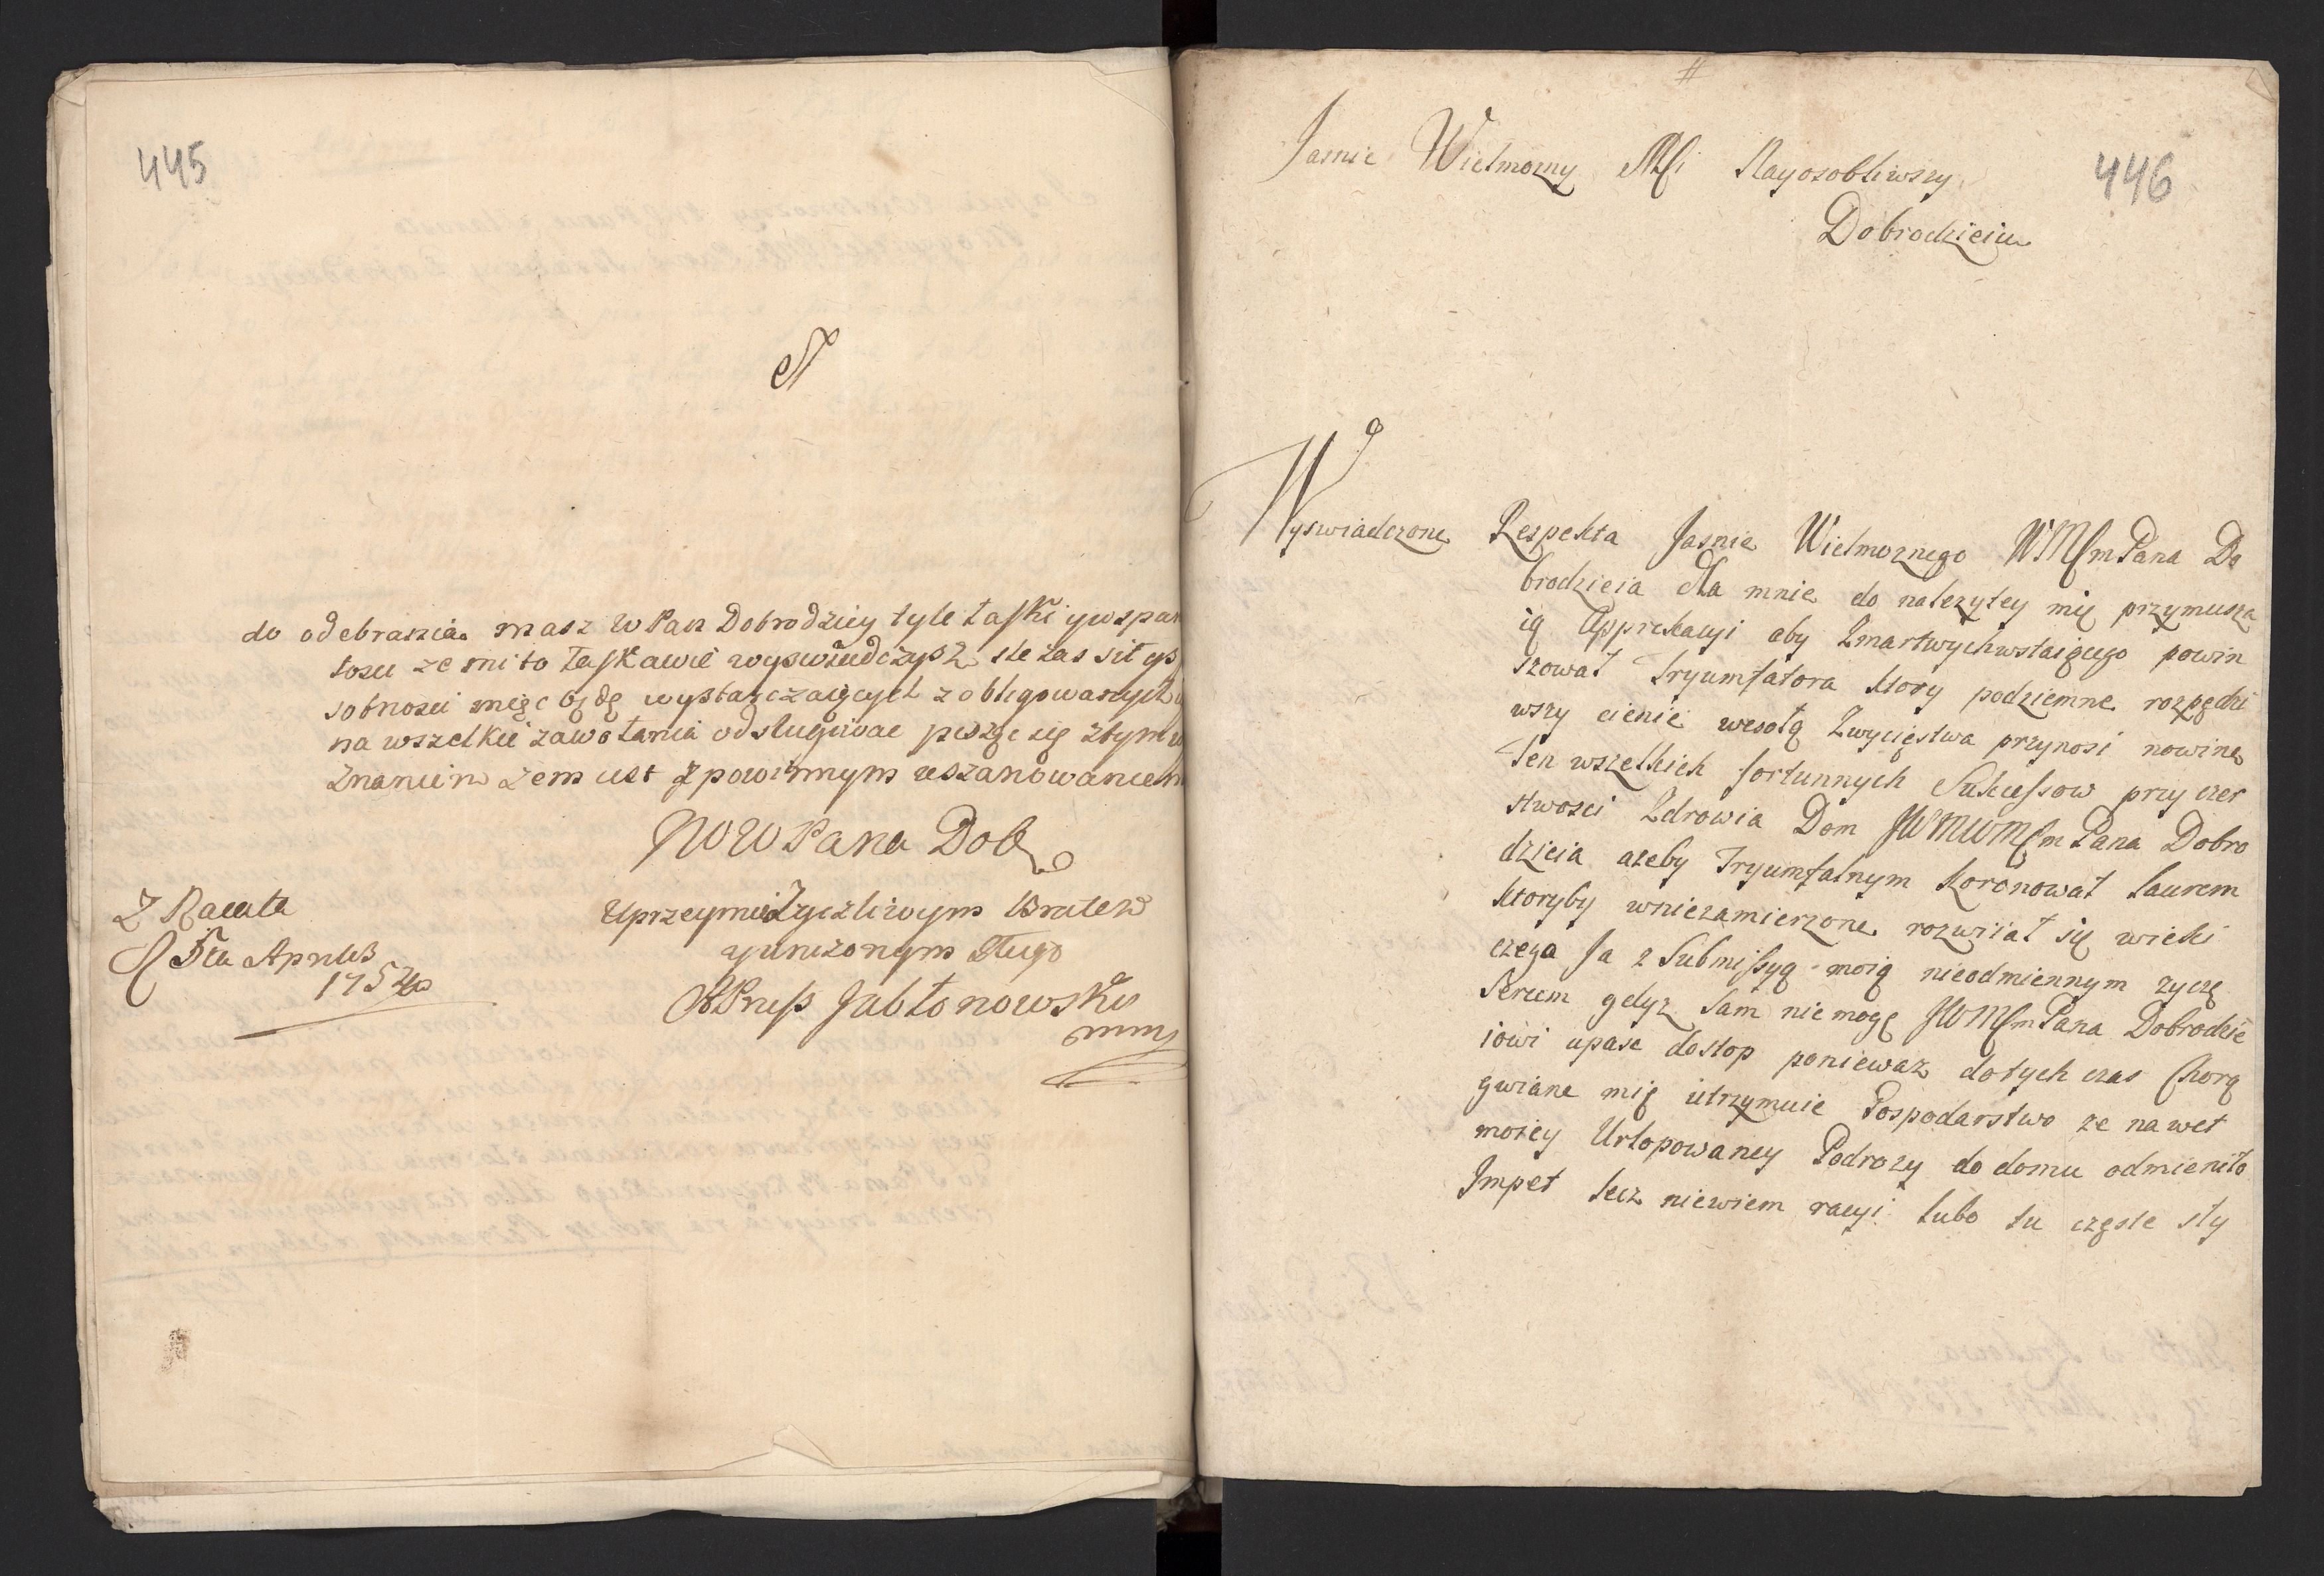 445
do odebrania masz WPan Dobrodziey tyle łaski y wspan
łosci ze mi to łaskawie wyswiedczysz
sobnosci mięc będę wystarczaiących zobligowanych
na wszelkie zawołania odsługiwac piszęc się z tym
znaniem zem iest z powinnym uszanowaniem
WW Pana Dob
Uprzeymie Zyczliwym Bratem
y unizonym Sługo
Jabłonowski
mm
Z Racuta
5ta Aprilis
1754
446
Jasnie Wielmozny Mći Nayosobliwszy
Dobrodzieiu
Wyswiadczone Respekta Jasnie Wielmoznego WMćm Pana Do
brodzieia dla mnie do nalezytey mię przymusza
ią Apprekacyi aby Zmartwychwstaiącego powin
szował Tryumfatora ktory podziemne rozpędzi
wszy cienie wesołą Zwycięstwa przynosi nowine
Ten wszelkich fortunnych Sukcessow przy czer
stwosci Zdrowia Dom JWMWMćm Pana Dobro
dzieia azeby Tryumfalnym koronował laurem
ktoryby wniezamierzone rozwiiał się wieki
czego Ja z Submissyą moią nieodmiennym zyczę
Sercem gdyz sam niemogę JWMćm Pana Dobrodzie
iowi upasc dostop poniewaz dotych czas Chorą
gwiane mię utrzymuie Gospodarstwo ze nawet
mozey Urlopowaney Podrozy do domu odmieniło
Impet lecz niewiem racyi lubo tu częste sły